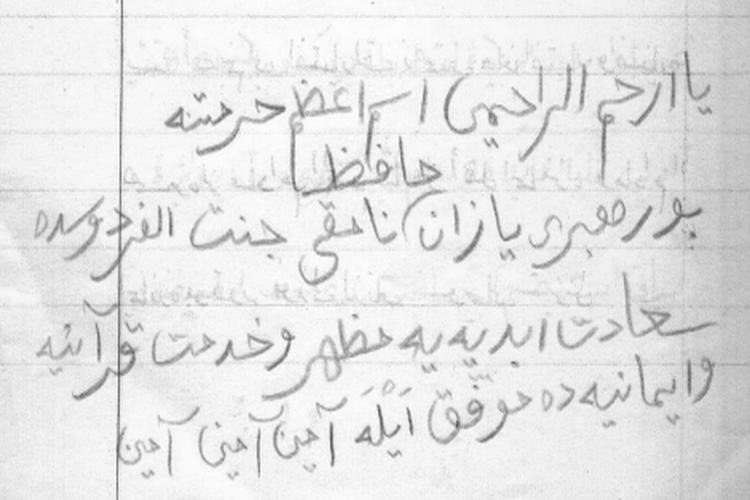 يا ارحم الراحمين اسم اعظم حرمتنه
حافظ
يازان ناحقى جنت الفردوسده
سعادت ابديه يه مظهر و خدمت قرآنيه
و ايمانيه ده موفق اَيْلَه آمين آمين آمين